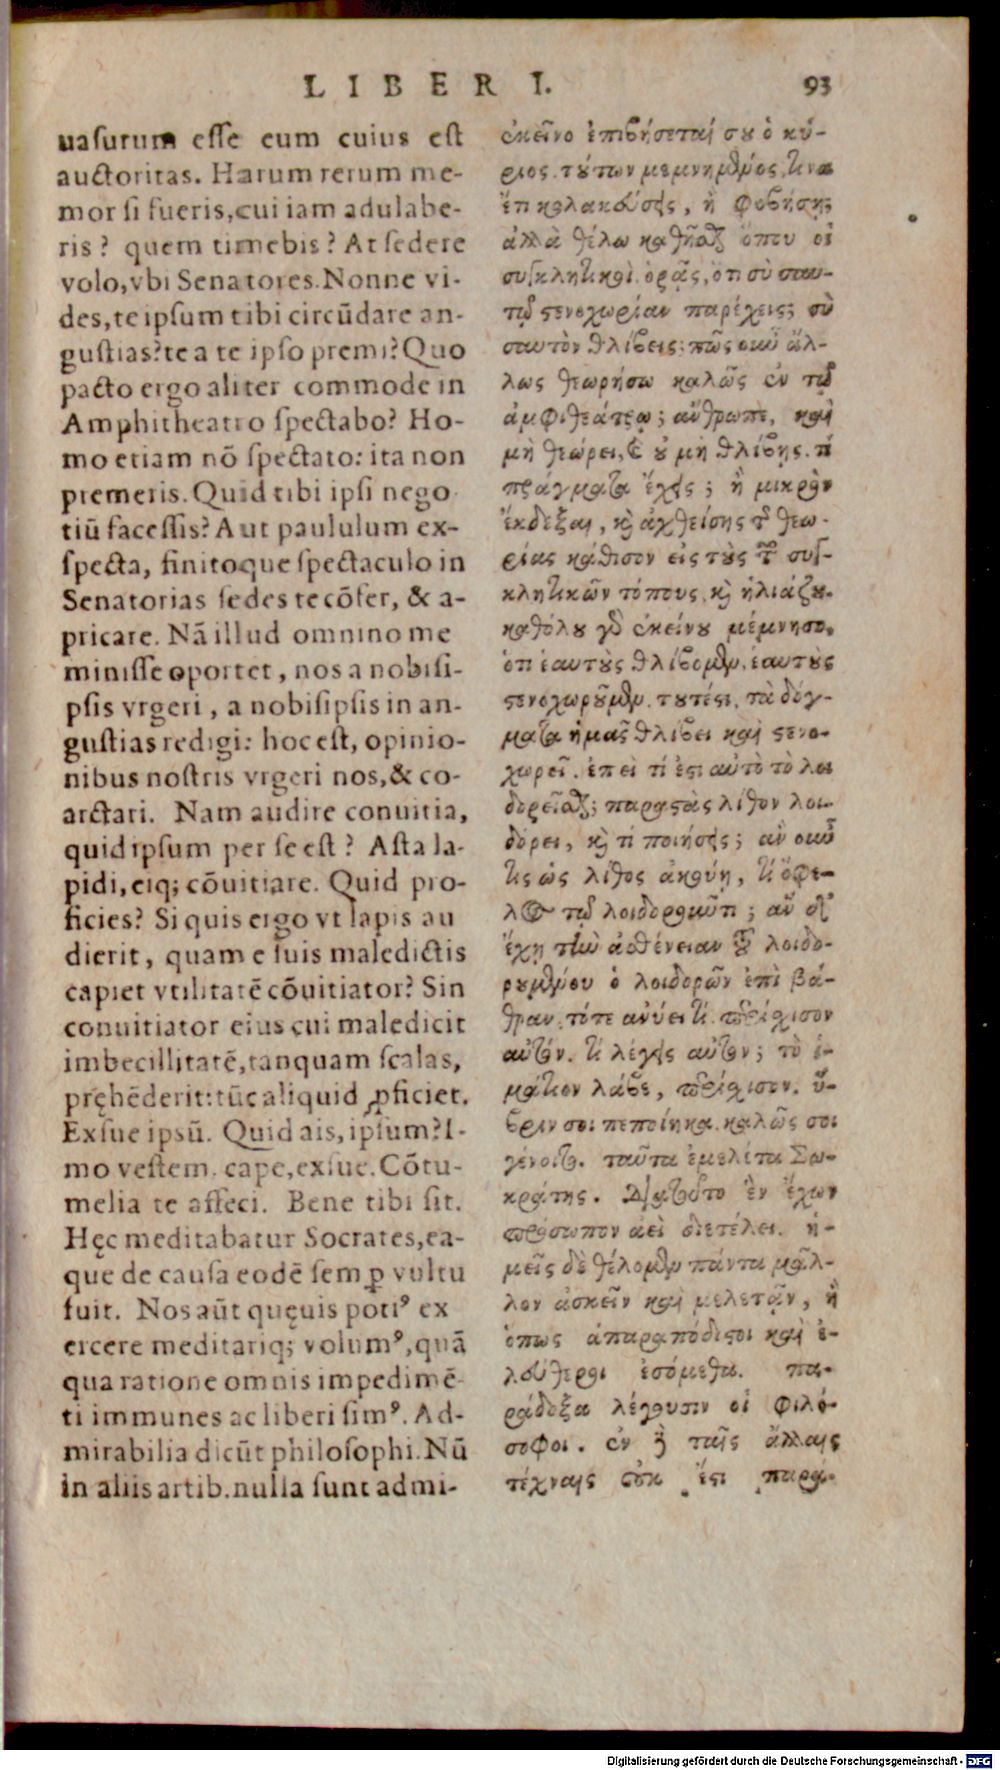 LIBER I. 93
uasurum esse eum cuius est
auctoritas. Harum rerum me-
mor si fueris, cui iam adulabe-
ris? quem timebis? At sedere
volo, vbi Senatores. Nonne vi-
des, te ipsum tibi circũdare an-
gustias? te a te ipso premi? Quo
pacto ergo aliter commode in
Amphitheatro spectabo? Ho-
mo etiam nõ spectato: ita non
premeris. Quid tibi ipsi nego
tiũ facessis? Aut paululum ex-
specta, finitoque spectaculo in
Senatorias sedes te cõfer, & a-
pricare. Nã illud omnino me
minisse oportet, nos a nobisi-
psis vrgeri, a nobisipsis in an-
gustias redigi: hoc est, opinio-
nibus nostris vrgeri nos, & co-
arctari. Nam audire conuitia,
quid ipsum per se est? Asta la-
pidi, eiq; cõuitiare. Quid pro-
ficies? Si quis ergo vt lapis au
dierit, quam e suis maledictis
capiet vtilitatẽ cõuitiator? Sin
conuitiator eius cui maledicit
imbecillitatẽ, tanquam scalas,
pręhẽderit: tũc aliquid ꝓficiet.
Exsue ipsũ. Quid ais, ipsum? I-
mo vestem cape, exsue. Cõtu-
melia te affeci. Bene tibi sit.
Hęc meditabatur Socrates, ea-
que de causa eodẽ semꝑ vultu
fuit. Nos aũt quęuis potiꝰ ex
ercere meditariq; volumꝰ, quã
qua ratione omnis impedimẽ-
ti immunes ac liberi simꝰ. Ad-
mirabilia dicũt philosophi. Nũ
in aliis artib. nulla sunt admi-
ἐκεῖνο ἐπιβήσεταί σου ὁ κύ-
ριος. τούτων μεμνημένος, τίνα
ἔτι κολακεύσεις, ἢ φοβήσῃ;
ἀλλὰ θέλω καθῆσθαι ὅπου οἱ
συγκλητικοί. ὁρᾷς, ὅτι σὺ σαυ-
τῷ στενοχωρίαν παρέχεις; σὺ
σαυτὸν θλίβεις; πῶς οὖν ἄλ-
λως θεωρήσω καλῶς ἐν τῷ
ἀμφιθεάτρῳ; ἄνθρωπε, καὶ
μὴ θεώρει, καὶ οὐ μὴ θλίβῃς. τί
πράγματα ἔχεις; ἢ μικρὸν
ἔκδεξαι, καὶ ἀχθείσης τῆς θεω-
ρίας κάθισον εἰς τοὺς τῶν συγ-
κλητικῶν τόπους, καὶ ἡλιάζου.
καθόλου γὰρ ἐκείνου μέμνησο,
ὅτι ἑαυτοὺς θλίβομεν, ἑαυτοὺς
στενοχωροῦμεν. τουτέστι, τὰ δόγ-
ματα ἡμᾶς θλίβει καὶ στενο-
χωρεῖ. ἐπεὶ τί ἐστι αὐτὸ τὸ λοι
δορεῖσθαι; παραστὰς λίθον λοι-
δόρει, καὶ τί ποιήσεις; ἂν οὖν
τις ὡς λίθος ἀκούῃ, τί ὄφε-
λος τῷ λοιδοροῦντι; ἂν δ'
ἔχῃ τὴν ἀσθένειαν τοῦ λοιδο-
ρουμένου ὁ λοιδορῶν ἐπὶ βά-
θραν, τότε ἀνύει τί. περίσχισον
αὐτόν. τί λέγεις αὐτόν; τὸ ἱ-
μάτιον λάβε, περίσχισον. ὕ-
βριν σοι πεποίηκα. καλῶς σοι
γένοιτο. ταῦτα ἐμελέτα Σω-
κράτης. Διὰ τοῦτο ἓν ἔχων
πρόσωπον ἀεὶ διετέλει. ἡ-
μεῖς δὲ θέλομεν πάντα μᾶλ-
λον ἀσκεῖν καὶ μελετᾷν, ἢ
ὅπως ἀπαραπόδιστοι καὶ ἐ-
λεύθεροι ἐσόμεθα. πα-
ράδοξα λέγουσιν οἱ φιλό-
σοφοι. ἐν δὲ ταῖς ἄλλαις
τέχναις οὐκ ἔστι παρά-
Digitalisierung gefördert durch die Deutsche Forschungsgemeinschaft - DFG